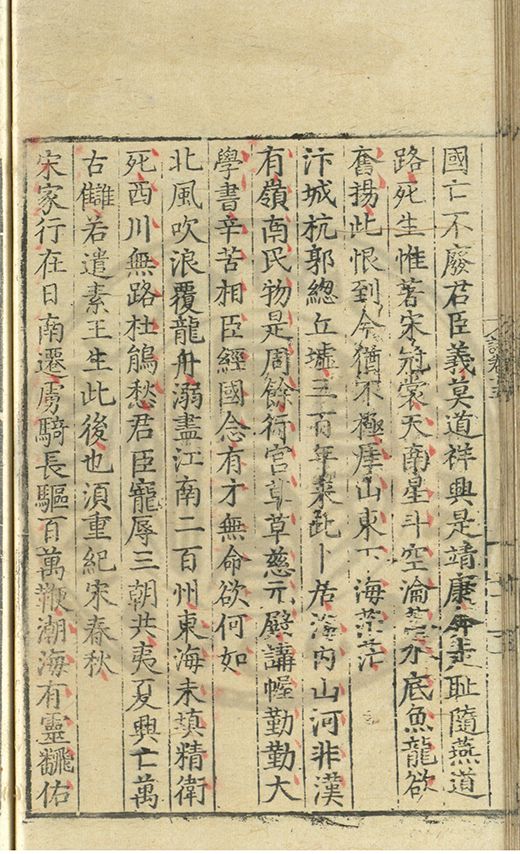 國亡不廢君臣義莫道祥興是靖康奔走恥隨燕道
路死生惟著宋冠裳天南星斗空淪落水底魚龍欲
奮揚此恨到今猶不極厓山東下海茫茫
汴城杭郭總丘墟三百年來此卜居海內山河非漢
有嶺南民物是周餘行宮草草慈元殿講幄勤勤大
學書辛苦相臣經國念有才無命欲何如
北風吹浪覆龍舟溺盡江南二百州東海未填精衛
死西川無路杜鵑愁君臣寵辱三朝共夷夏興亡萬
古讎若遣素王生此後也須重紀宋春秋
宋家行在日南遷虜騎長驅百萬鞭潮海有靈翻佑